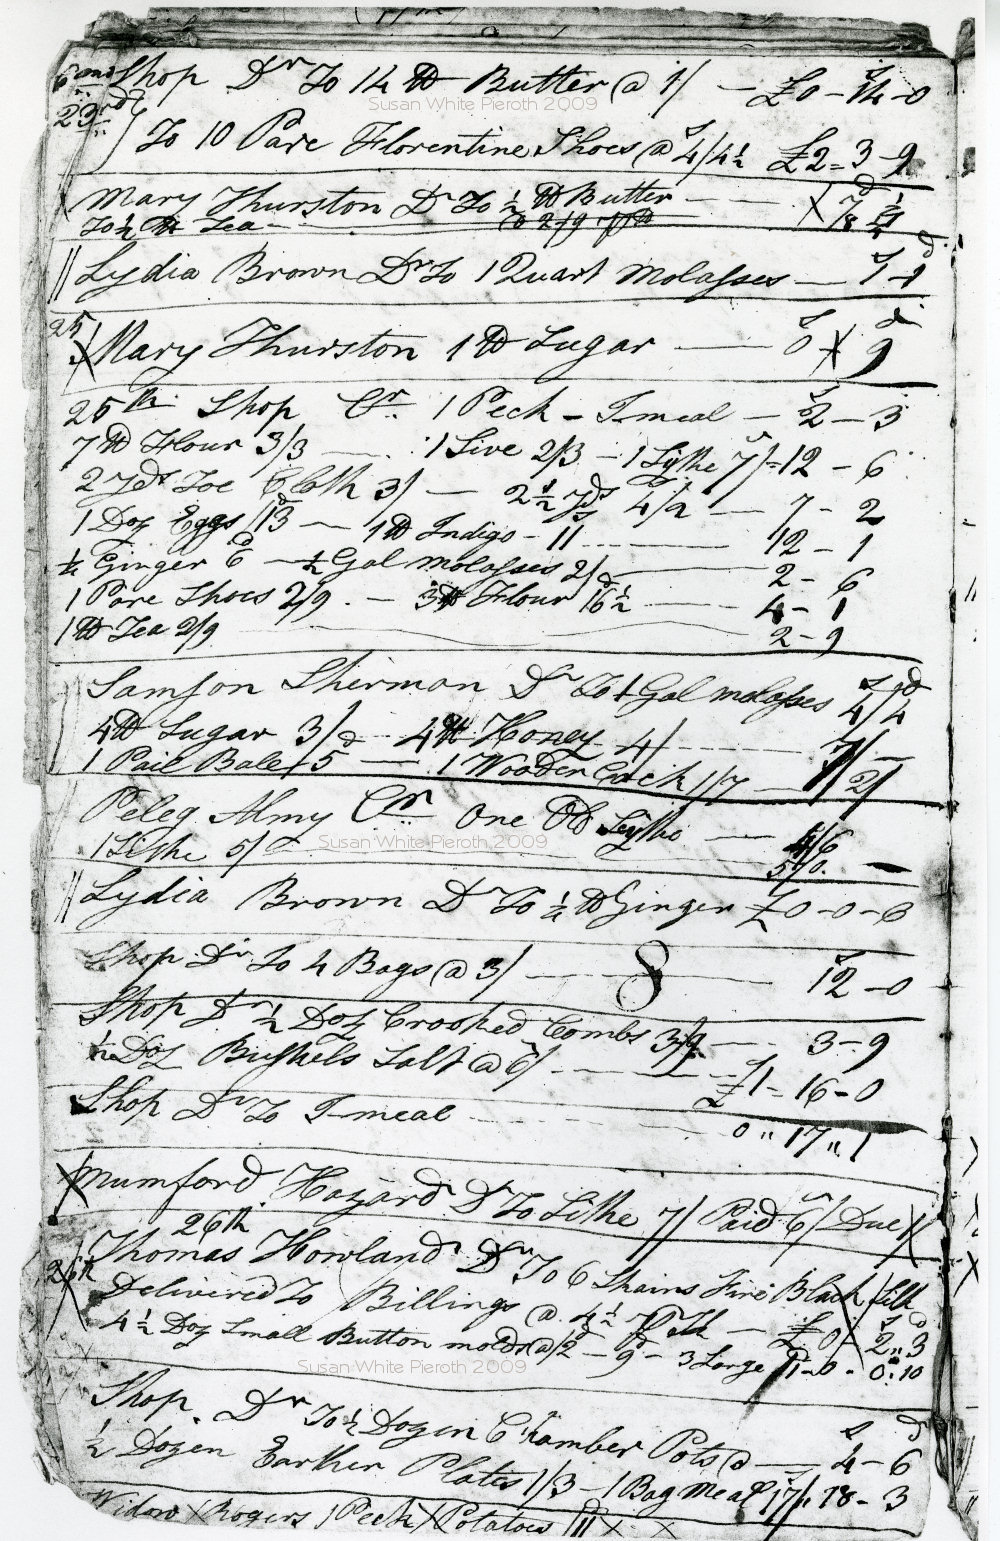 6 and Shop Dr To 14 lb Butter @ 1/ — £0-14-0
Susan White Pieroth 2009
23rd To 10 Pare Florentine Shoes @ 4/4½ £2-3-9
Mary Thurston Dr To ½ lb Butter — — 7 ½
To ½ lb Tea — @ 2/9 pr lb
Lydia Brown Dr To 1 Quart Molasses — 1-1
25 Mary Thurston 1 lb Sugar — 0 X 9
25th Shop Cr 1 Peck - I-meal — 2-3
7 lb Flour 3/3 — 1 Sive 2/3 - 1 Sythe 7/ = 12-6
2 yds Toe Cloth 3/ — 2½ yds 4/2 — 7-2
1 Doz Eggs /13 — 1 lb Indigo - 11 — 12-1
¼ Ginger 6 — ½ Gal molasses 2/ — 2-6
1 Pare Shoes 2/9 — 3 lb Flour 16½ — 4-1
1 lb Tea 2/9 — 2-9
Samson Sherman Dr To 1 Gal molasses 4/4
4 lb Sugar 3/ — 4 lb Honey 4/ — 7/-
1 Pail Bale /5 — 1 Wooden Cock 1/7 — 2/
Peleg Almy Cr One Old Scythe — 4/6
1 Sithe 5/ — 5/0
Susan White Pieroth 2009
Lydia Brown Dr To ¼ lb Ginger £0-0-6
Shop Dr To 4 Bags @ 3/ — 8 12-0
Shop Dr ½ Doz Crooked Combs 3/9 — 3-9
½ Doz Bushels Salt @ 6/ — £1-16-0
Shop Dr To I-meal — 0 " 17 " 1
Mumford Hazard Dr To Sithe 7/ Paid 6/ Due 1/
26th
26th Thomas Howland Dr To 6 Skains Fine Black Silk
Delivered To Billings @ 4½ — £0-2"3
4½ Doz Small Button molds @ /2 - 9 - 3 Large 1-0 - 0:10
Susan White Pieroth 2009
Shop Dr To ½ Dozen Chamber Pots @ — 4-6
½ Dozen Earthen Plates 1/3 - 1 Bag Meal 17/ 18-3
Widow Rogers 1 Peck Potatoes